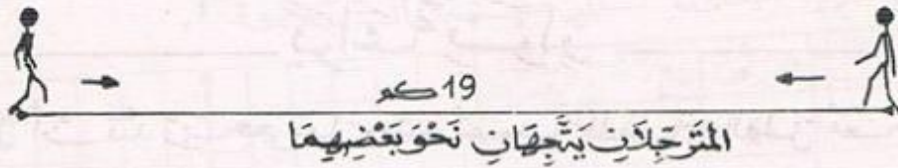 19 كو
المُتَرَجِّلَانِ يَتَّجِهَانِ نَحْوَ بَعْضِهِمَا